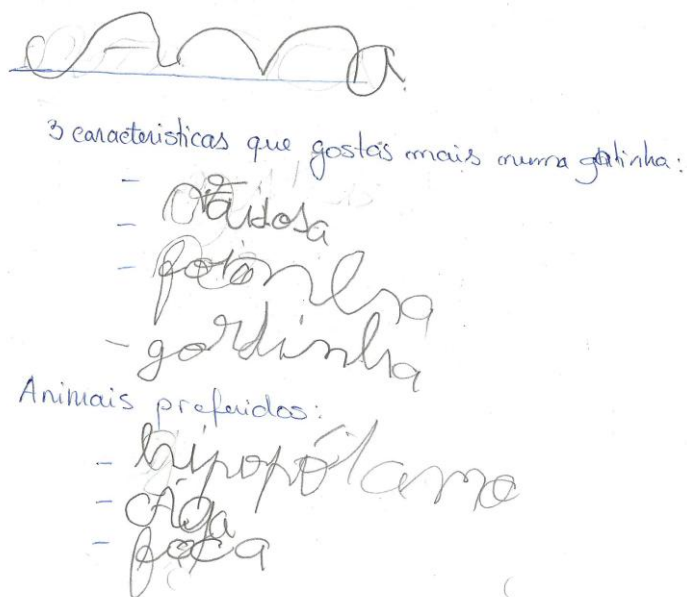 Ana
3 características que gostas mais numa gatinha:
-
- vaidosa
- fofinha
- gordinha
Animais preferidos:
- hipopótamo
-
- foca